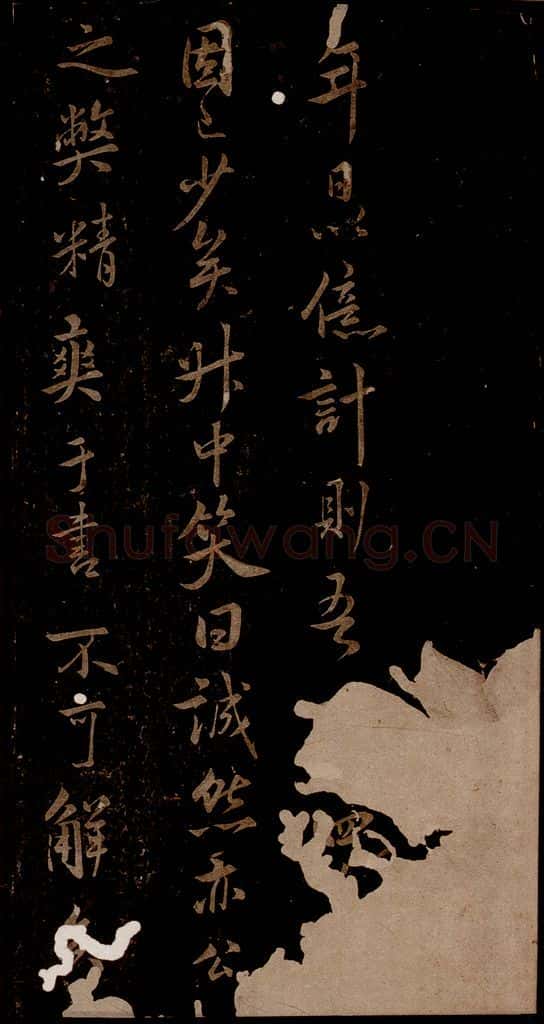 年日以億計則吾
固已少矣叔中笑曰誠然亦公
之弊精爽于書不可解
Shufawang.CN